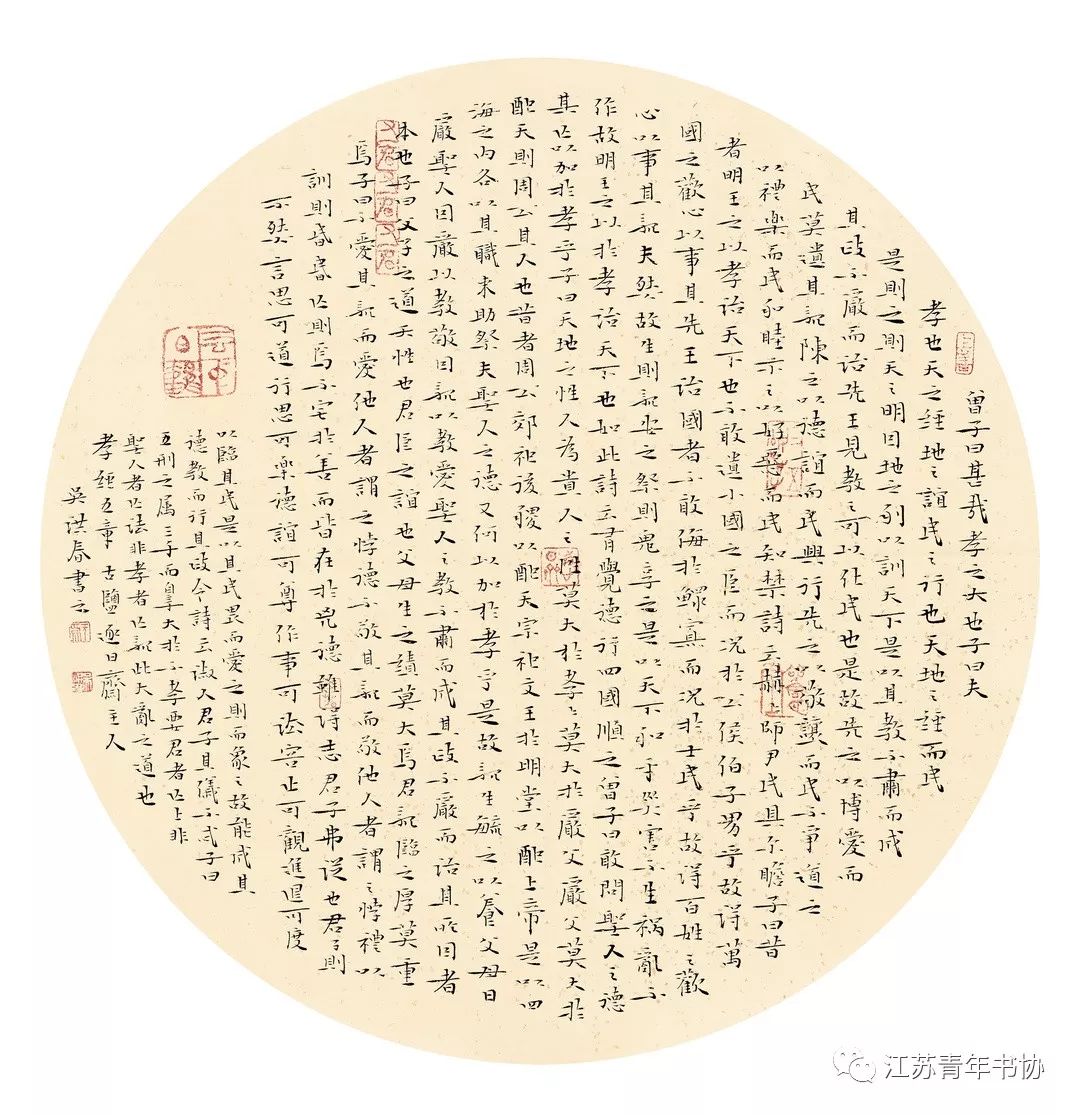 曾子曰甚哉孝之大也子曰夫
孝也天之經地之誼民之行也天地之經而民
是則之則天之明因地之利以訓天下是以其教不肅而成
其政不嚴而治先王見教之可以化民也是故先之以博愛而
民莫遺其親陳之以德誼而民興行先之以敬讓而民不爭道之
以禮樂而民和睦示之以好惡而民知禁詩云赫〻師尹民具尒瞻子曰昔
者明王之以孝治天下也不敢遺小國之臣而況於公侯伯子男乎故得萬
國之歡心以事其先王治國者不敢侮於鰥寡而況於士民乎故得百姓之歡
心以事其親夫然故生則親安之祭則鬼享之是以天下和平災害不生禍亂不
作故明王之以於孝治天下也如此詩云有覺德行四國順之曾子曰敢問聖人之德
其亡以加於孝乎子曰天地之性人為貴人之性莫大於孝〻莫大於嚴父嚴父莫大於
配天則周公其人也昔者周公郊祀后稷以配天宗祀文王於明堂以配上帝是以四
海之內各以其職來助祭夫聖人之德又何以加於孝乎是故親生毓之以養父母日
嚴聖人因嚴以教敬因親以教愛聖人之教不肅而成其政不嚴而治其所因者
本也子曰父子之道天性也君臣之誼也父母生之績莫大焉君親臨之厚莫重
焉子曰不愛其親而愛他人者謂之悖德不敬其親而敬他人者謂之悖禮以
訓則昏昏亡則焉不宅於善而皆在於凶德雖得志君子弗從也君子則
不然言思可道行思可樂德誼可尊作事可法容止可觀進退可度
以臨其民是以其民畏而愛之則而象之故能成其
德教而行其政令詩云淑人君子其儀不忒子曰
五刑之屬三千而辠大於不孝要君者亡上非
聖人者亡法非孝者亡親此大亂之道也
孝經五章 古鹽逐日齋主人
吳洪春書
江苏青年书协